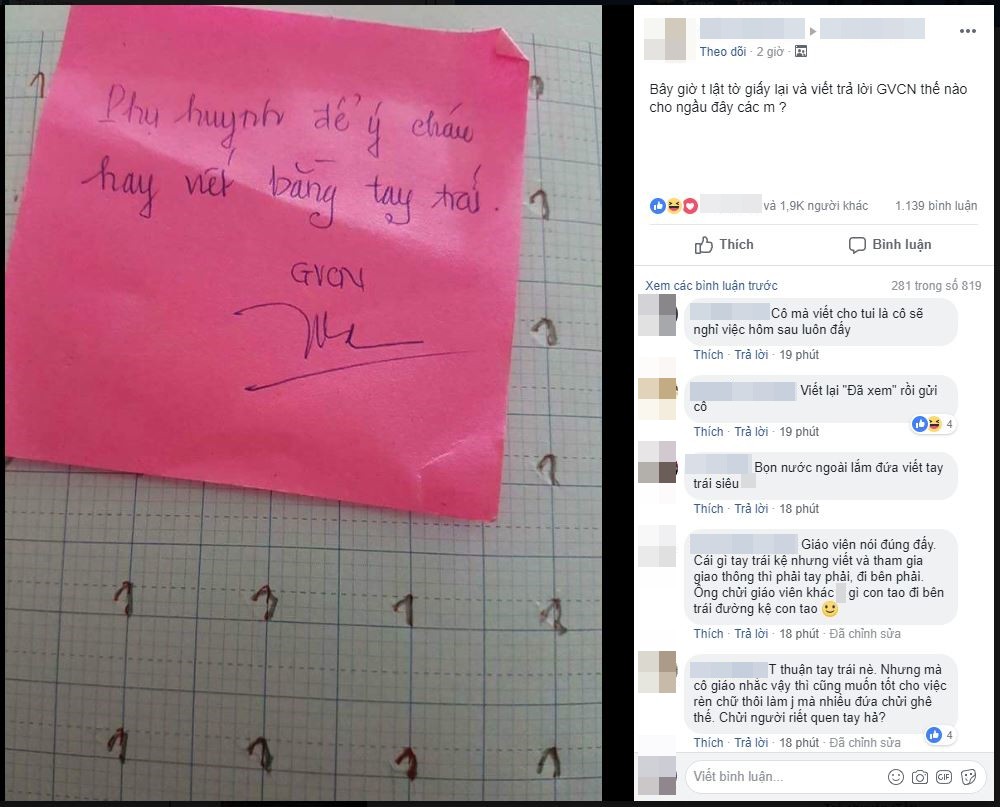 Phụ huynh để ý cháu
hay viết bằng tay trái.
GVCN
1
1
1
1
1
1
1
1
1
1
1
1
Theo dõi · 2 giờ ·
Bây giờ t lật tờ giấy lại và viết trả lời GVCN thế nào
cho ngầu đây các m ?
và 1,9K người khác 1.139 bình luận
Thích Bình luận
Xem các bình luận trước 281 trong số 819
Cô mà viết cho tui là cô sẽ
nghỉ việc hôm sau luôn đấy
Thích · Trả lời · 19 phút
Viết lại "Đã xem" rồi gửi
cô
4
Thích · Trả lời · 19 phút
Bọn nước ngoài lắm đứa viết tay
trái siêu
Thích · Trả lời · 18 phút
Giáo viên nói đúng đấy.
Cái gì tay trái kệ nhưng viết và tham gia
giao thông thì phải tay phải, đi bên phải.
Ông chửi giáo viên khác gì con tao đi bên
trái đường kệ con tao
Thích · Trả lời · 18 phút · Đã chỉnh sửa
T thuận tay trái nè. Nhưng mà
cô giáo nhắc vậy thì cũng muốn tốt cho việc
rèn chữ thôi làm j mà nhiều đứa chửi ghê
thế. Chửi người riết quen tay hả?
4
Thích · Trả lời · 18 phút · Đã chỉnh sửa
Viết bình luận...
GIF